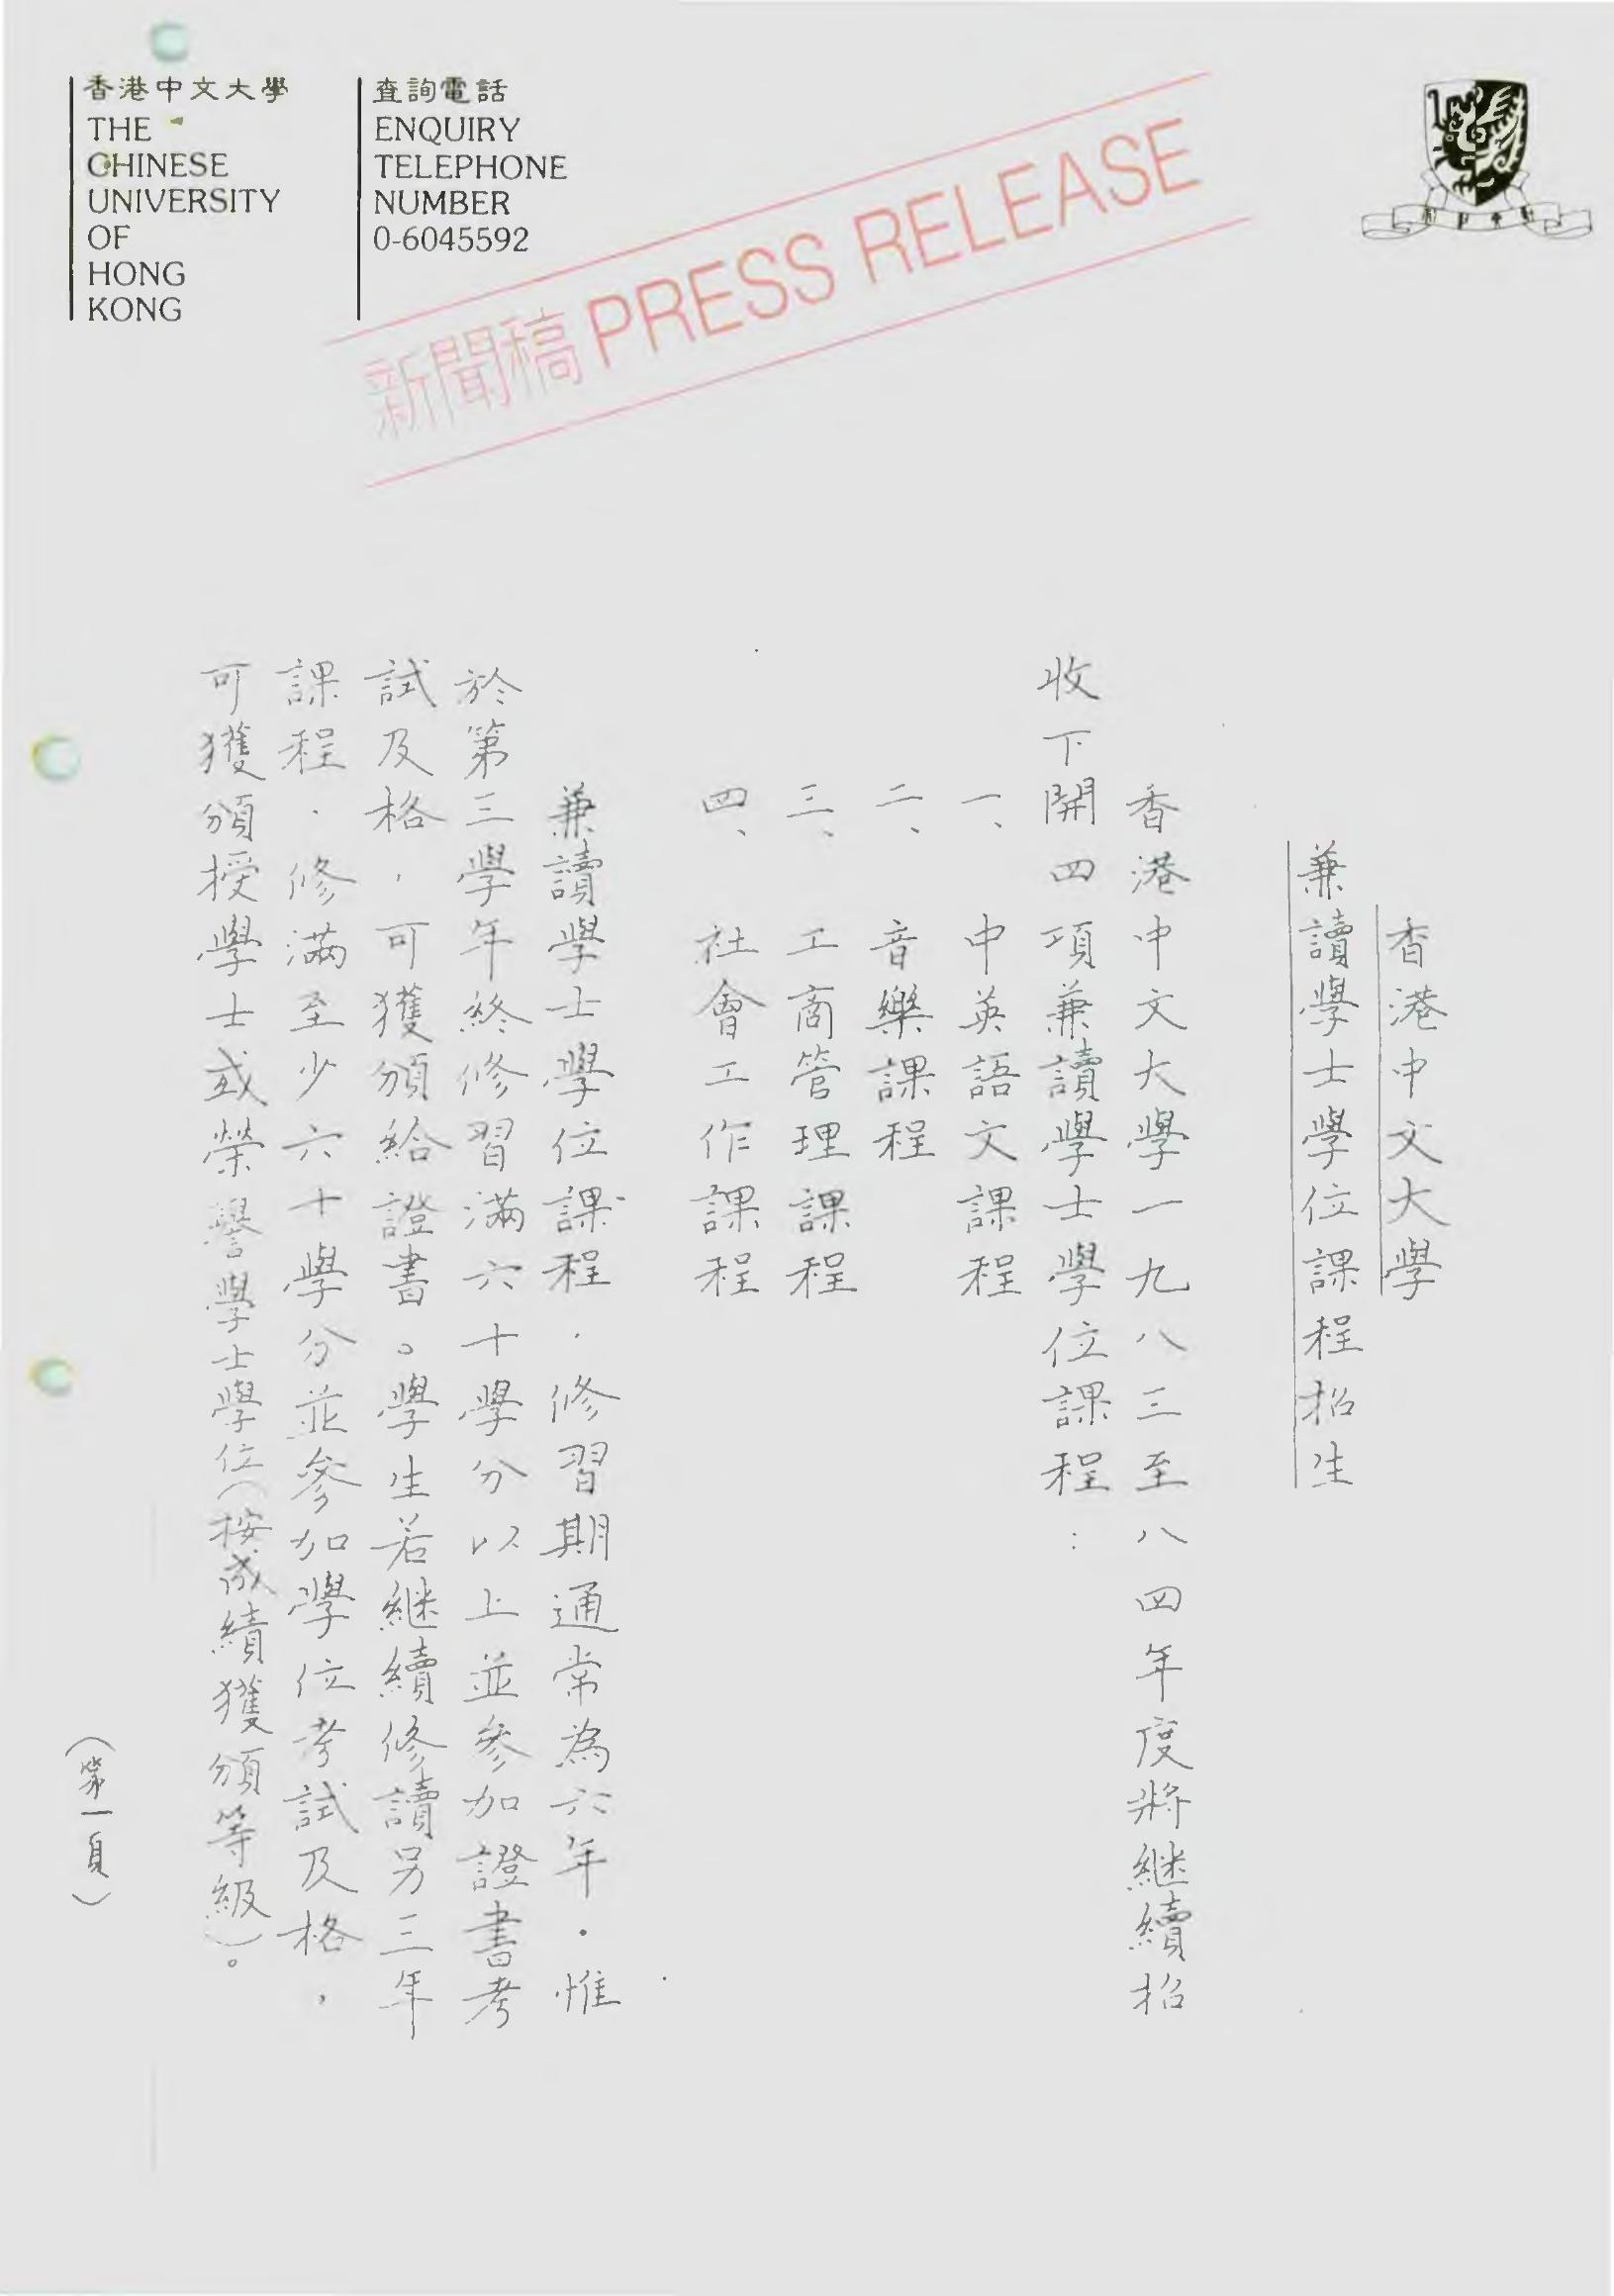 香港中文大學
THE
CHINESE
UNIVERSITY
OF
HONG
KONG
查詢電話
ENQUIRY
TELEPHONE
NUMBER
0-6045592
新聞稿 PRESS RELEASE
香港中文大學
兼讀學士學位課程招生
香港中文大學一九八三至八四年度將継續招
收下開四項兼讀學士學位課程：
一、中英語文課程
二、音樂課程
三、工商管理課程
四、社會工作課程
兼讀學士學位課程，修習期通常為六年，惟
於第三學年終修習滿六十學分以上並參加證書考
試及格，可獲頒給證書。學生若継續修讀另三年
課程，修滿至少六十學分並參加學位考試及格，
可獲頒授學士或榮譽學士學位（按成績獲頒等級）。
（第一頁）